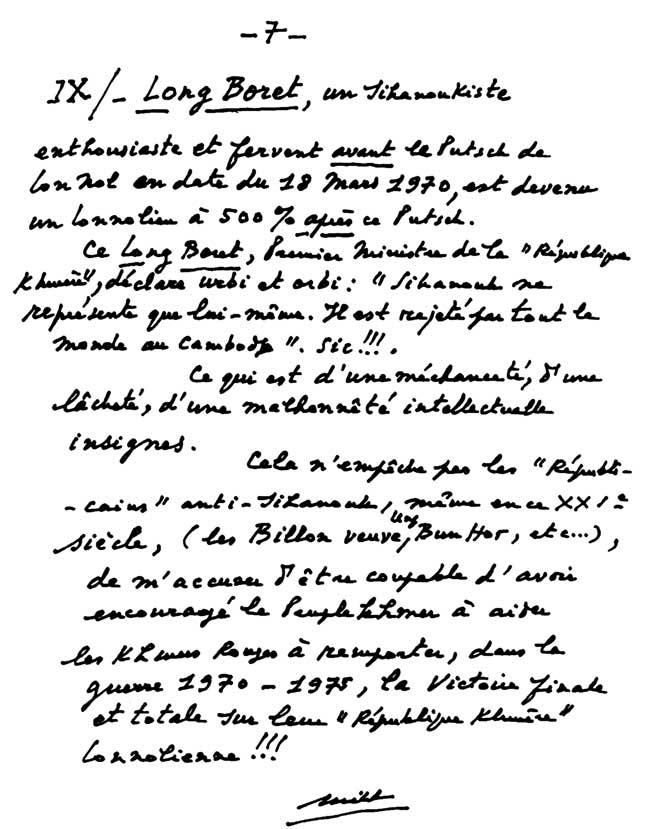 -7-
IX/- Long Boret, un Sihanoukiste
enthousiaste et fervent avant le Putsch de
Lon Nol en date du 18 Mars 1970, est devenu
un Lonnolien à 500% après ce Putsch.
Ce Long Boret, Premier Ministre de la "République
Khmère", déclare urbi et orbi : "Sihanouk ne
représente que lui-même. Il est rejeté par tout le
monde au Cambodge". Sic!!!.
Ce qui est d'une méchanceté, d'une
lâcheté, d'une malhonnêté intellectuelle
insignes.
Cela n'empêche pas les "Républi-
-cains" anti-Sihanouk, même en ce XXIe
siècle, (les Billon veuve Ung, Bun Hor, etc...),
de m'accuser d'être coupable d'avoir
encouragé le Peuple khmer à aider
les Khmers Rouges à remporter, dans la
guerre 1970-1975, la Victoire finale
et totale sur leur "République Khmère"
Lonnolienne !!!